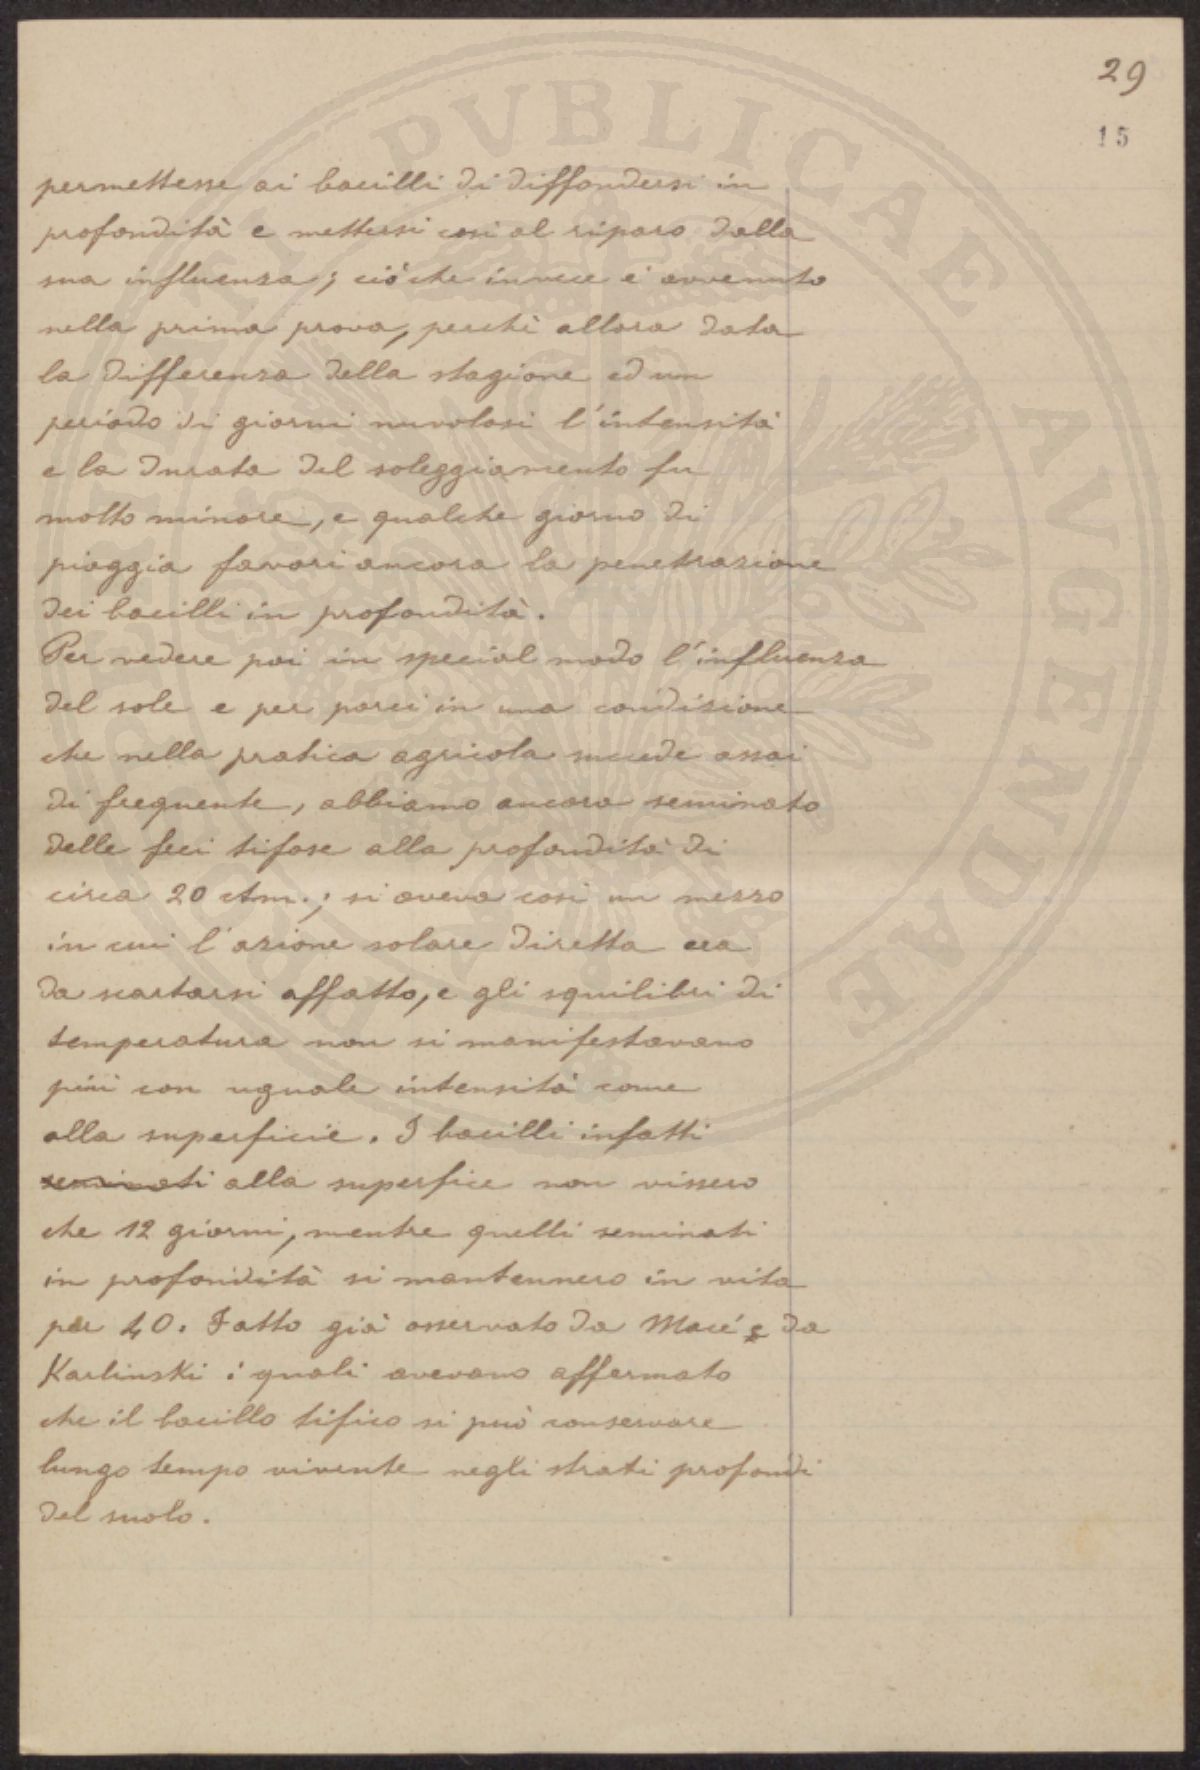 29
15
permettesse ai bacilli di diffondersi in
profondità e mettersi così al riparo dalla
sua influenza; ciò che invece è avvenuto
nella prima prova, perchè allora data
la differenza della stagione ed un
periodo di giorni nuvolosi l'intensità
e la durata del soleggiamento fu
molto minore, e qualche giorno di
pioggia favorì ancora la penetrazione
dei bacilli in profondità.
Per vedere poi in special modo l'influenza
del sole e per porci in una condizione
che nella pratica agricola succede assai
di frequente, abbiamo ancora seminato
delle feci tifose alla profondità di
circa 20 ctm.; si aveva così un mezzo
in cui l'azione solare diretta era
da scartarsi affatto, e gli squilibri di
temperatura non si manifestavano
più con uguale intensità come
alla superficie. I bacilli infatti
seminati alla superfice non vissero
che 12 giorni, mentre quelli seminati
in profondità si mantennero in vita
per 40. Fatto già osservato da Macé e da
Karlinski i quali avevano affermato
che il bacillo tifico si può conservare
lungo tempo vivente negli strati profondi
del suolo.
PVBLICAE AVGENDAE